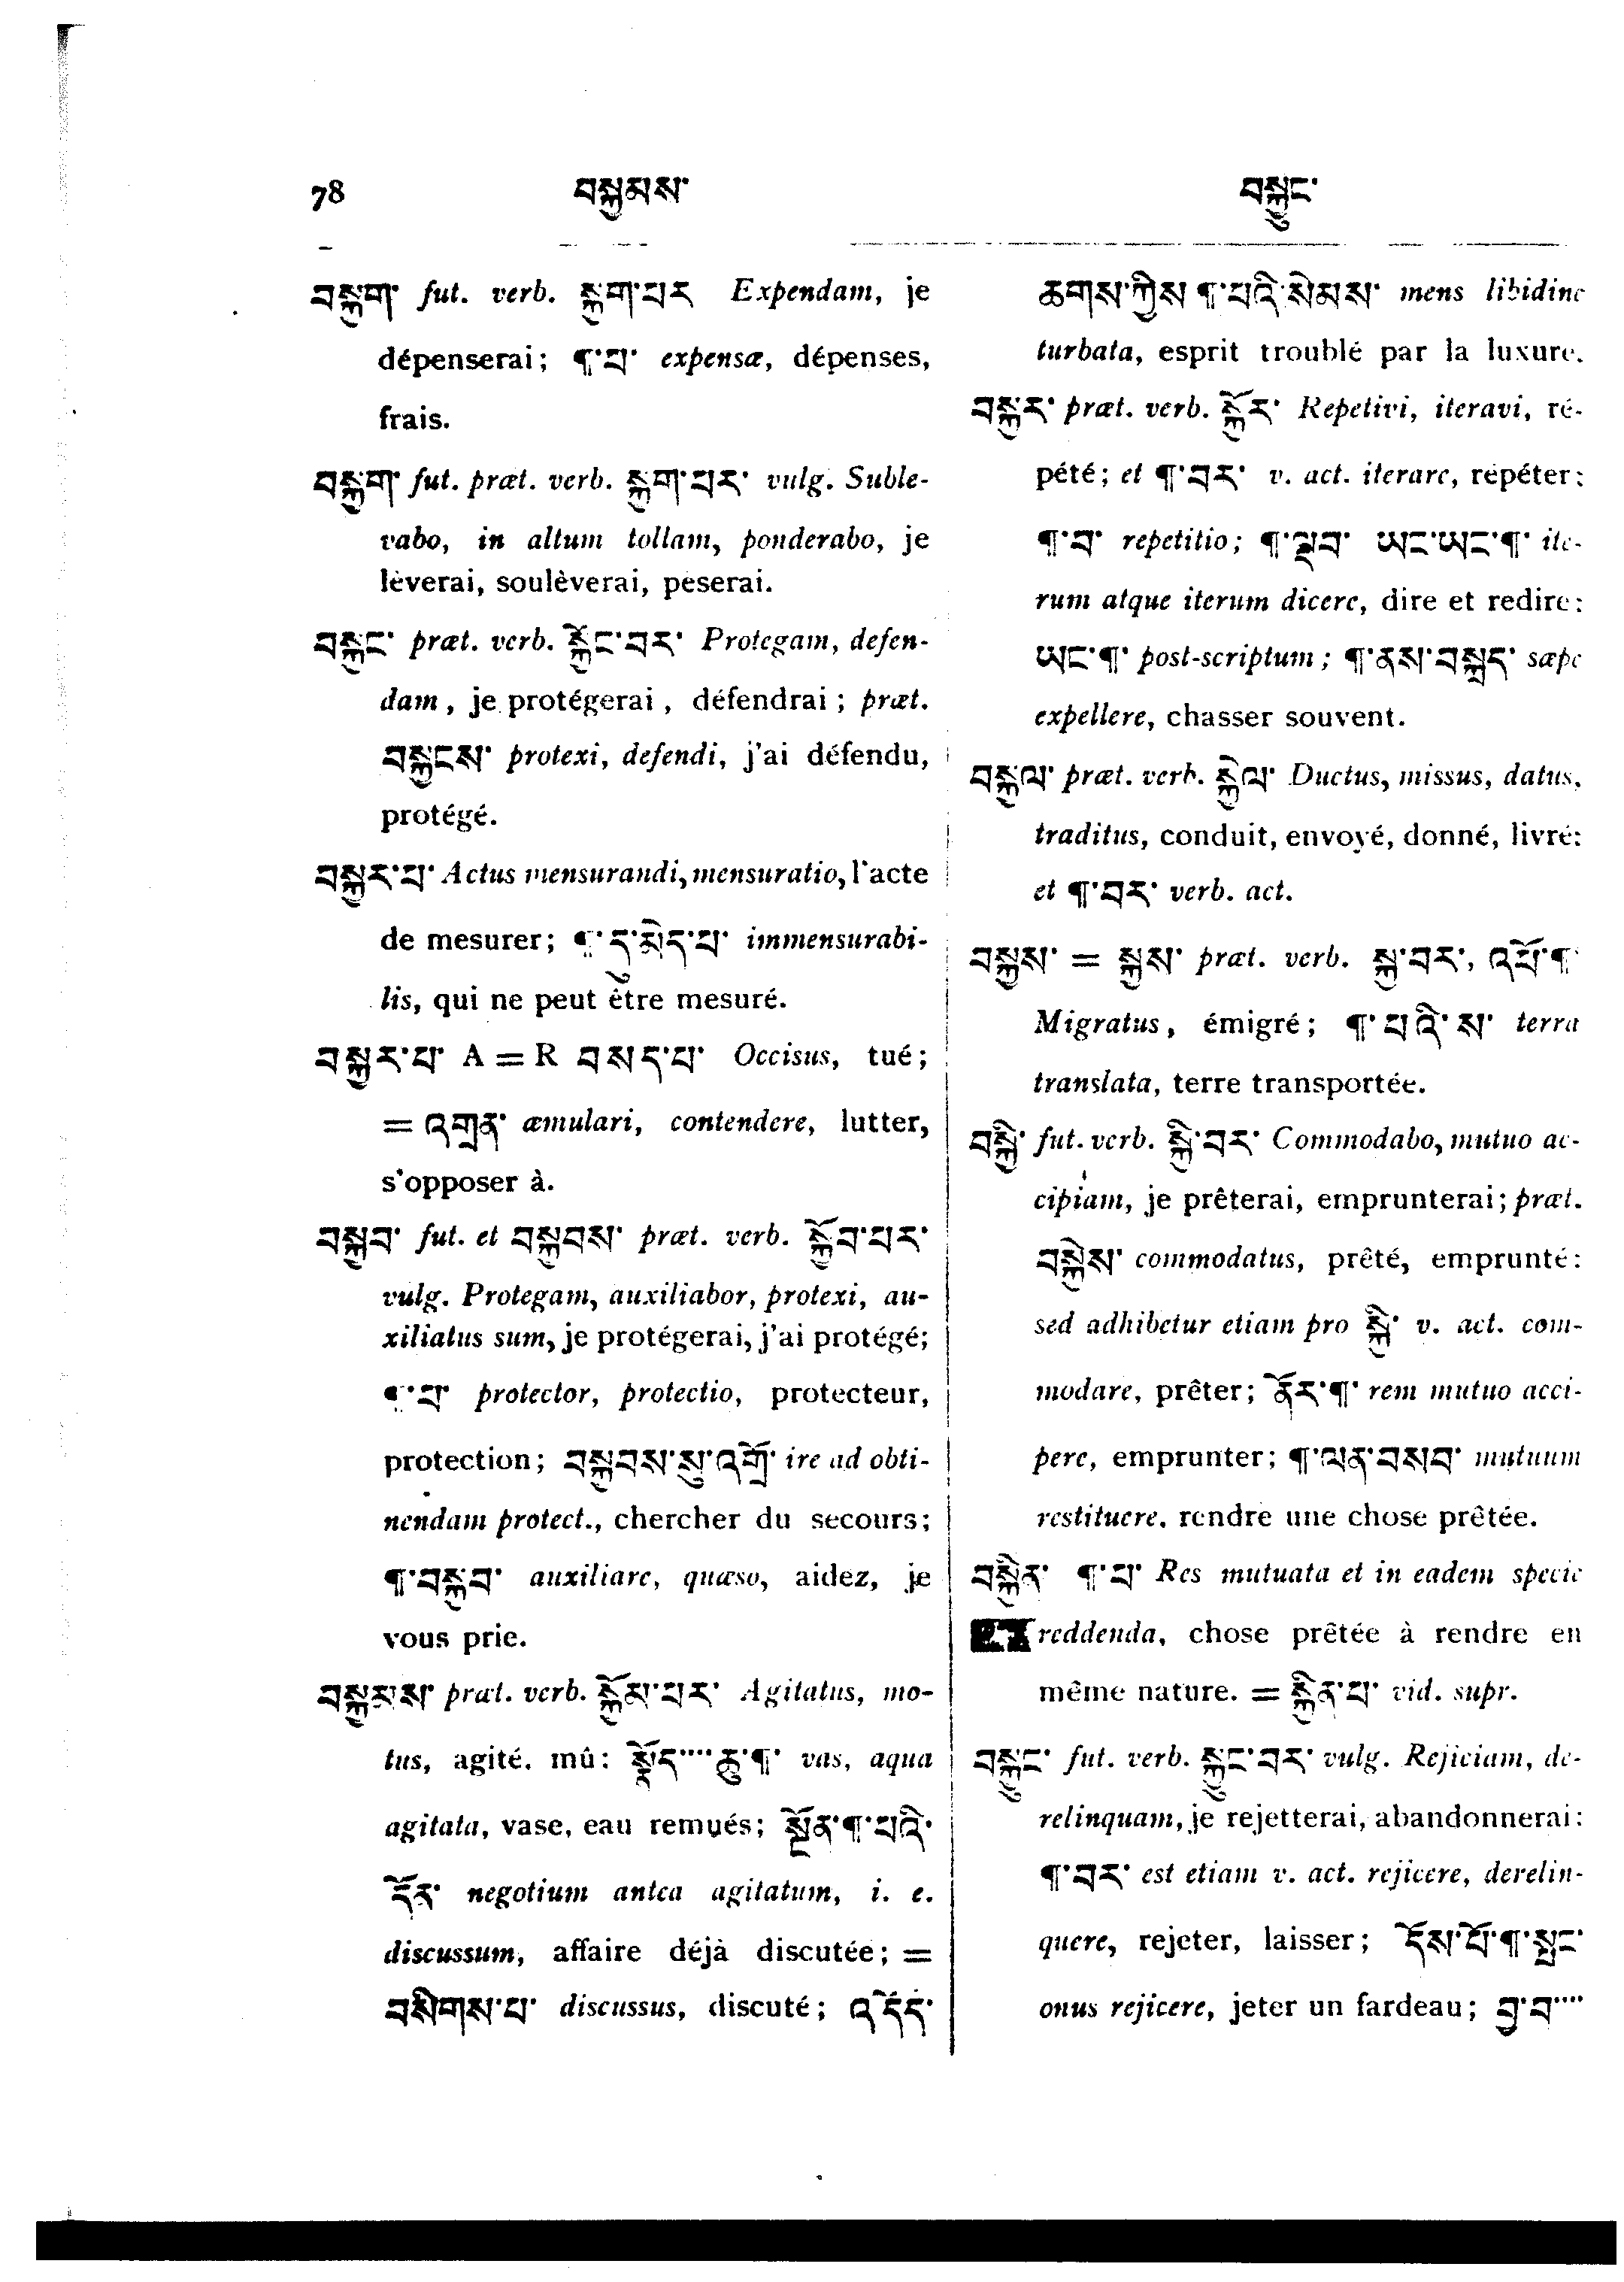 78 བསྐྱམས་ བསྐྱུང་
བསྐུག་ fut. verb. སྐུག་པར Expendam, je
dépenserai; ¶་པ་ expensæ, dépenses,
frais.
བསྐྱག་ fut. præt. verb. སྐྱག་པར་ vulg. Suble-
vabo, in altum tollam, ponderabo, je
lèverai, soulèverai, pèserai.
བསྐྱང་ præt. verb. སྐྱོང་བར་ Protegam, defen-
dam, je protégerai, défendrai; præt.
བསྐྱངས་ protexi, defendi, j'ai défendu,
protégé.
བསྐྱར་པ་ Actus mensurandi, mensuratio, l'acte
de mesurer; ¶་དུ་མེད་པ་ immensurabi-
lis, qui ne peut être mesuré.
བསྐྱར་པ་ A = R བསད་པ་ Occisus, tué;
= འགྲན་ æmulari, contendere, lutter,
s'opposer à.
བསྐྱབ་ fut. et བསྐྱབས་ præt. verb. སྐྱོབ་པར་
vulg. Protegam, auxiliabor, protexi, au-
xiliatus sum, je protégerai, j'ai protégé;
¶་པ་ protector, protectio, protecteur,
protection; བསྐྱབས་སུ་འགྲོ་ ire ad obti-
nendam protect., chercher du secours;
¶་བསྐྱབ་ auxiliare, quæso, aidez, je
vous prie.
བསྐྱམས་ præt. verb. སྐྱོམ་པར་ Agitatus, mo-
tus, agité, mû: སྣོད་....ཆུ་¶་ vas, aqua
agitata, vase, eau remués; སྔོན་¶་པའི་
དོན་ negotium antea agitatum, i. e.
discussum, affaire déjà discutée; =
བསིགས་པ་ discussus, discuté; འདོད་
ཆགས་ཀྱིས་¶་པའི་སེམས་ mens libidine
turbata, esprit troublé par la luxure.
བསྐྱར་ præt. verb. སྐྱོར་ Repetivi, iteravi, ré-
pété; et ¶་བར་ v. act. iterare, répéter;
¶་བ་ repetitio; ¶་ལྡབ་ ཡང་ཡང་¶་ ite-
rum atque iterum dicere, dire et redire:
ཡང་¶་ post-scriptum; ¶་ནས་བསྐྲད་ sæpe
expellere, chasser souvent.
བསྐྱལ་ præt. verb. སྐྱེལ་ Ductus, missus, datus,
traditus, conduit, envoyé, donné, livré:
et ¶་བར་ verb. act.
བསྐྱས་ = སྐྱས་ præt. verb. སྐྱ་བར་, འཕོ་¶་
Migratus, émigré; ¶་པའི་ས་ terra
translata, terre transportée.
བསྐྱི་ fut. verb. སྐྱི་བར་ Commodabo, mutuo ac-
cipiam, je prêterai, emprunterai; præt.
བསྐྱིས་ commodatus, prêté, emprunté:
sed adhibetur etiam pro སྐྱི་ v. act. com-
modare, prêter; ནོར་¶་ rem mutuo acci-
pere, emprunter; ¶་ལན་བསབ་ mutuum
restituere, rendre une chose prêtée.
བསྐྱིན་ ¶་པ་ Res mutuata et in eadem specie
reddenda, chose prêtée à rendre en
même nature. = སྐྱིན་པ་ vid. supr.
བསྐྱུང་ fut. verb. སྐྱུང་བར་ vulg. Rejiciam, de-
relinquam, je rejetterai, abandonnerai:
¶་བར་ est etiam v. act. rejicere, derelin-
quere, rejeter, laisser; དོས་པོ་¶་སྤང་
onus rejicere, jeter un fardeau; བྱ་བ་....